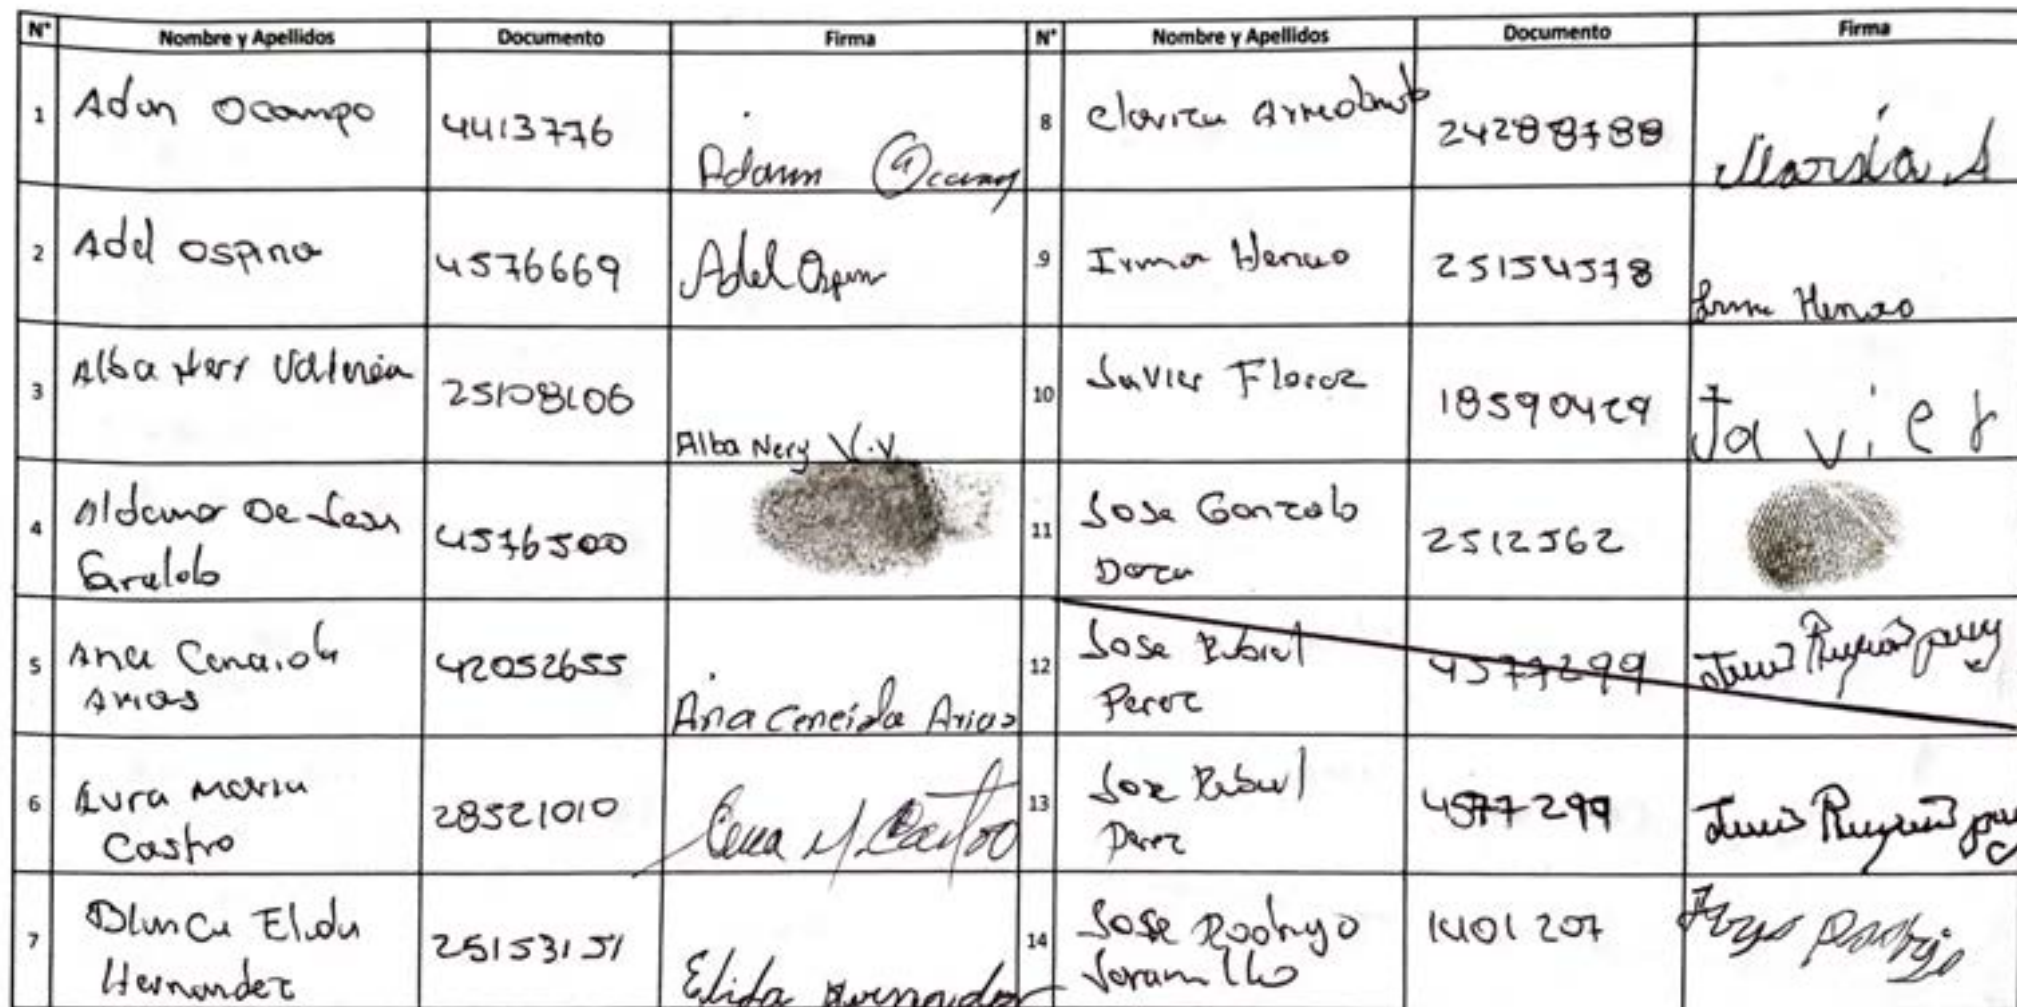 N° Nombre y Apellidos Documento Firma N° Nombre y Apellidos Documento Firma
1 Adan Ocampo 4413776 Adann Ocamp
8 24288788 Marsla A
2 Adel Ospina 4576669 Adel Ospina
9 Irma Henao 25154578 Irma Henao
3 Alba Nery Valencia 25108106 Alba Nery V.V.
10 Javier Florez 18590429 Javier
4 Aldemar De Jesus
Giraldo 4576500
11 Jose Gonzalo
Daza 2512562
5 Ana Ceneida
Arias 42052655 Ana Ceneida Arias
12 Jose
Perez 4577299
6 Aura Maria
Castro 28521010 M Castro
13 Jose
Perez 4577299
7 Blanca Elida
Hernandez 25153151 Elida Hernandez
14 Jose Rodrigo
Jaramillo 1401207